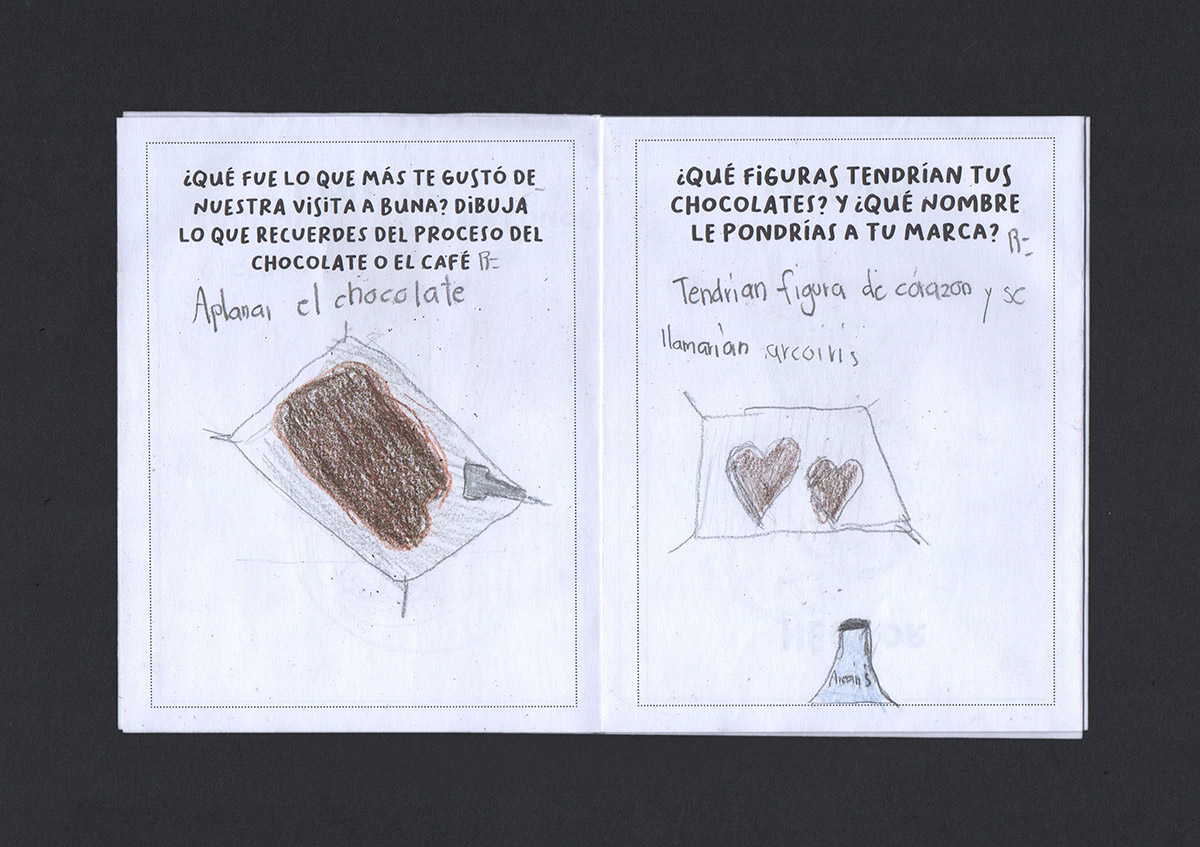 ¿QUÉ FUE LO QUE MÁS TE GUSTÓ DE
NUESTRA VISITA A BUNA? DIBUJA
LO QUE RECUERDES DEL PROCESO DEL
CHOCOLATE O EL CAFÉ R=
Aplanar el chocolate
¿QUÉ FIGURAS TENDRÍAN TUS
CHOCOLATES? Y ¿QUÉ NOMBRE
LE PONDRÍAS A TU MARCA?
R=
Tendrían figura de córazon y se
llamarían arcoiris